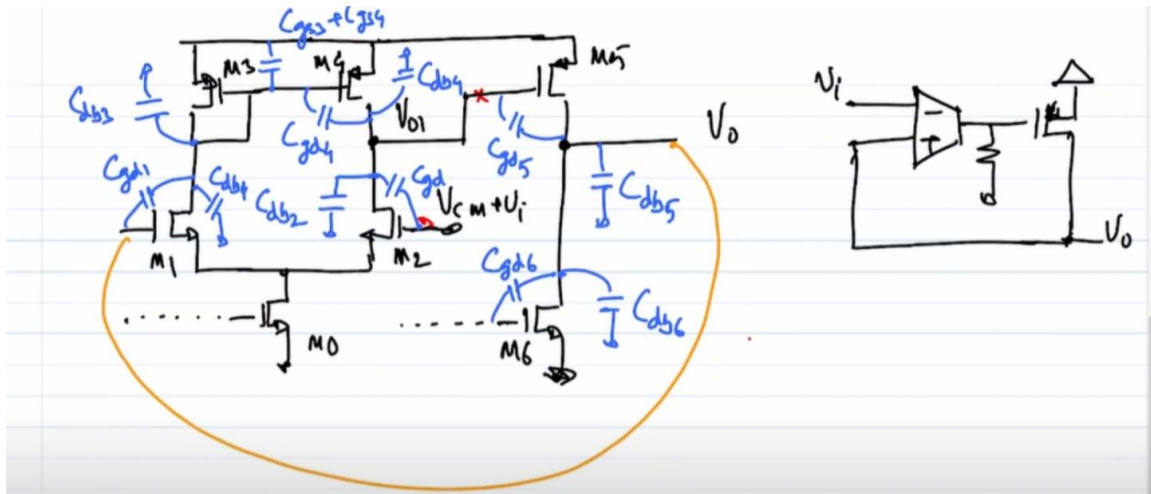 Cgs3+Cgs4
M3
M4
Cdb4
M5
Cdb3
Cgd4
V01
Cgd5
V0
Cgd1
Cdb1
Cdb2
Cgd
VCM+Vi
Cdb5
M1
M2
Cgd6
Cdb6
M0
M6
Vi
-
+
V0